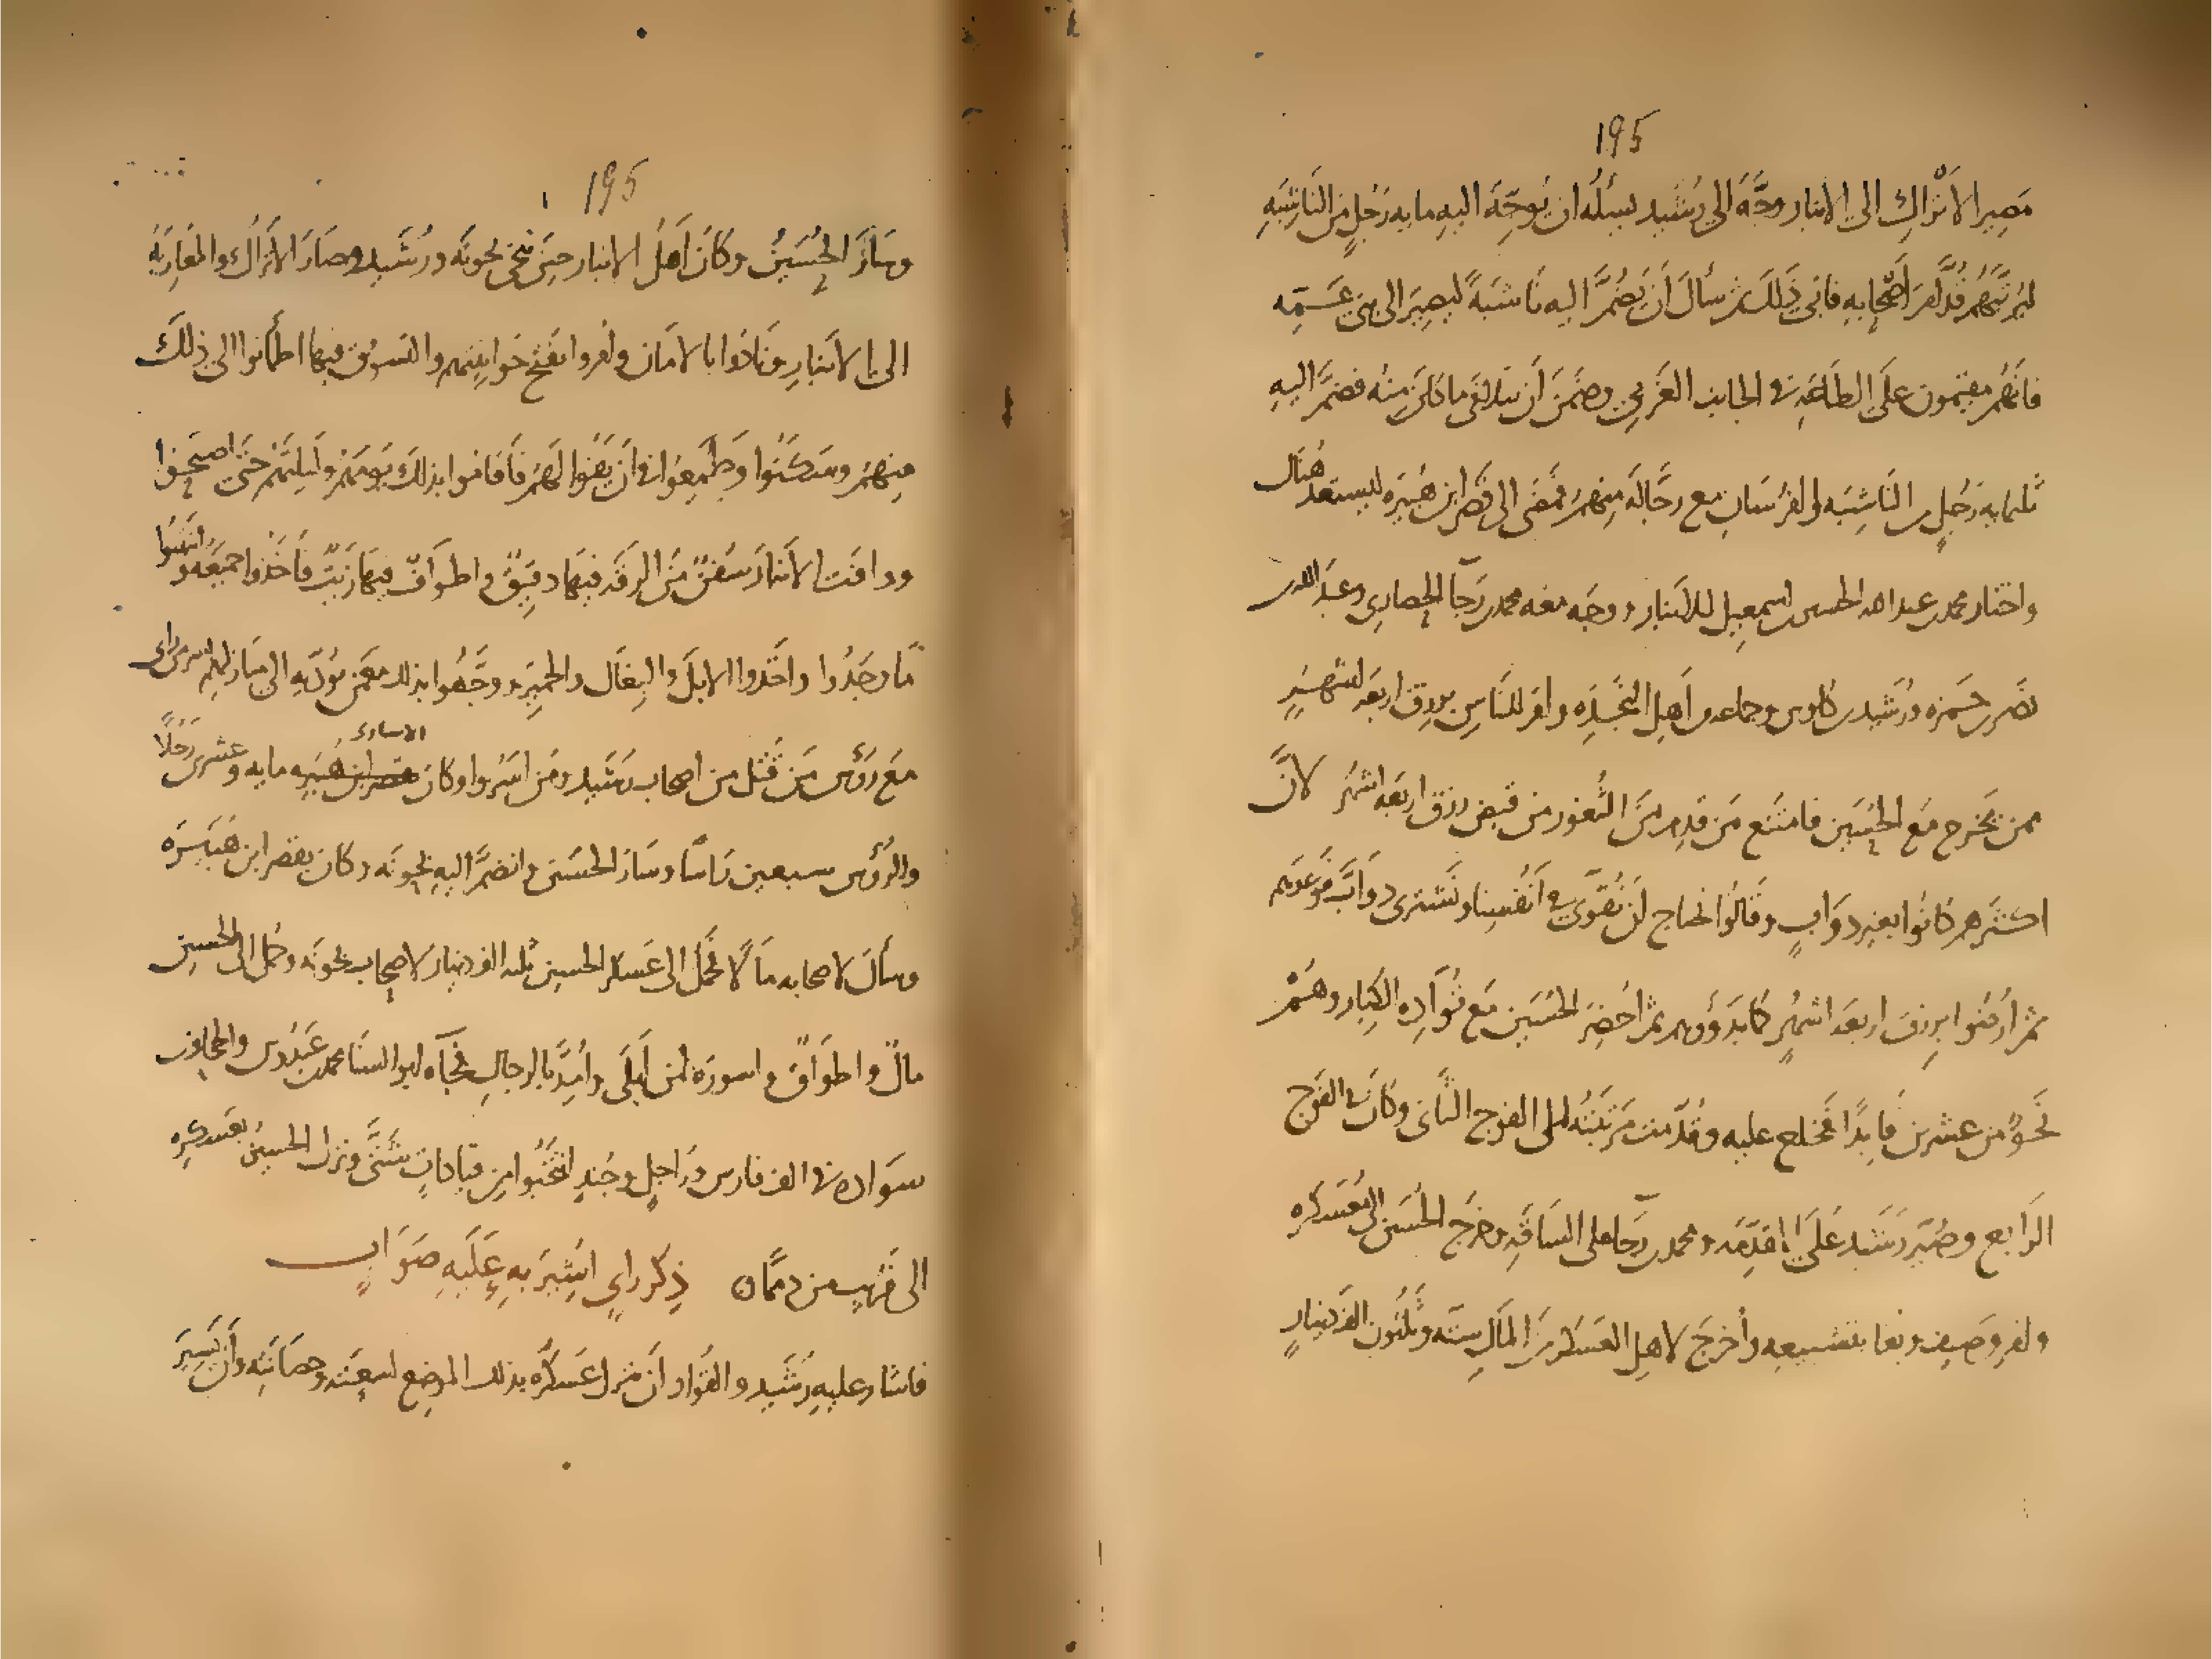 195
مَصِير الأَتْرَاكِ الى الانبار وجَّهَ الى رُشَيد يسئلُه ان يُوجِّهَ اليهِ مايه رَجُلٍ مِنَ النَاشِبَهِ
ليُرتبهُم قُدَّامَ اَصْحَابِهِ فابى ذَلكَ ثم سأل أَن يَضُمَّ اليه نَاشبَةً ليصِيرَ الى بنى عَمّه
فانَّهُم مقيمُون على الطاعَهِ فى الجانب الغَربي وضَمنَ أن يتلافَى ما كان مِنهُ فضَمَّ اليهِ
ثلثمايه رَجُلٍ من النَاشِبَه والفرُسَان مع رجَّالَة مِنهُم فمَضَى الى قَصر ابن هُبَيره ليستعد هُنَالك
واختار محمد بن عبد الله الحسين بن اسمعيل للانبار ووجَه معَه محمد بن رجَا الحِضارى وعبدَ الله بن
نَصر بن حَمزه ورُشَيد بن كاوس وجماعه من اَهلِ النَّجدَه وامَرَ للنَاسِ برزق اربعَه اشهُرٍ
ممن يَخرج مَع الحُسَين فامتَنع مَن قدِم منَ الثُّغور من قبض رزق اربعَه اشهُر لانَّ
اكثَرهم كانُوا بغير دوَابٍ وقَالُوا نحتاج ان نُقوّى فى اَنفُسِنا ونَشترى دوابَّ فوَعدهم
ثم ارْضُوا برِزق اربعَه اشهُرٍ ثم أحضِرَ الحُسَين مَع قُوَّادِه الكِبار وهُمْ
نَحوٌ من عشرين قايدًا فخلع عليه وقُدّمت مَرتَبَتُه الى الفوج الثانى وكان فى الفَوج
الرابع وصُيّر رُشَيد عَلَى المقدِّمَه ومحمد بن رجَا على السَاقَهِ وخَرَج الحُسَين الى مُعَسكَرِه
وامر وصِيف وبغا بتشييعِه وأخرجَ لاهلِ العَسكَر مِنَ المَالِ سِتَّه وثلثُون الفَ دينارٍ
195
وسَارَ الحُسَينُ وكانَ اَهلُ الانبار حينَ تنحى نجونَه ورُشَيد وصَارَ الاتراكُ والمغَاربَهُ
الى الانبارِ ونَادَوا بالامَان وامروا بفَتح حَوانيتهم والتَسوُّق فيها اطمأنوا الى ذلكَ
مِنهُم وسَكنُوا وطَمِعُوا فى أن يفُوا لهَم فاَقامُوا بذلكَ يَومَهُم ولَيلَتَهُم حَتى اصبَحُوا
ووافَت الانبارَ سُفنٌ مِنَ الرقَه فيهَا دقِيقٌ واطوافٌ فيهَا زيتٌ فاَخَذُوا جميعَه وانتهَبُوا
مَا وجَدُوا واخَذوا الابلَ والبِغَال والحَمِيرَ ووجَّهُوا بذلك مع مَن يُؤدّيهِ الى منَازلهِم بسر من راى
مَع رؤس مَن قُتل من اصحاب رُشَيد ومَن اسَرُوا وكان الاسارى مايه وعشرين رَجُلًا
والرؤس سبعين رَاسًا وسَارَ الحُسَين وانضمَّ اليهِ نجونَه وكان بقصر ابن هُبَيرَه
وسأل لاصحابه مَالًا فحُمل الى عَسكر الحسين ثلثه الف دينار لاصحاب نجونَه وحُمل الى الحسين
مالٌ واطوَاقٌ واسورَه لمن اَبلَى وأُمِدَّ بالرجَالِ فجَآه ابو السنَا محمد بن عَبدُوس والجحاف بن
سوَاده فى الف فارس ورَاجِلٍ وجُندٍ انتُخِبُوا مِن قيَادَاتٍ شَتَّى ونزل الحُسينُ بعَسكرِه
الى قُرب من دممَّا ن ذِكر راىٍ اُشِيرَ بهِ عَلَيهِ صَوَابٍ
فاشار عليهِ رُشَيد والقُوَّاد أَن ينزل عَسكَرُه بذلك الموضِع لسِعَته وحصَانَتِه وأَن يَسِيرَ